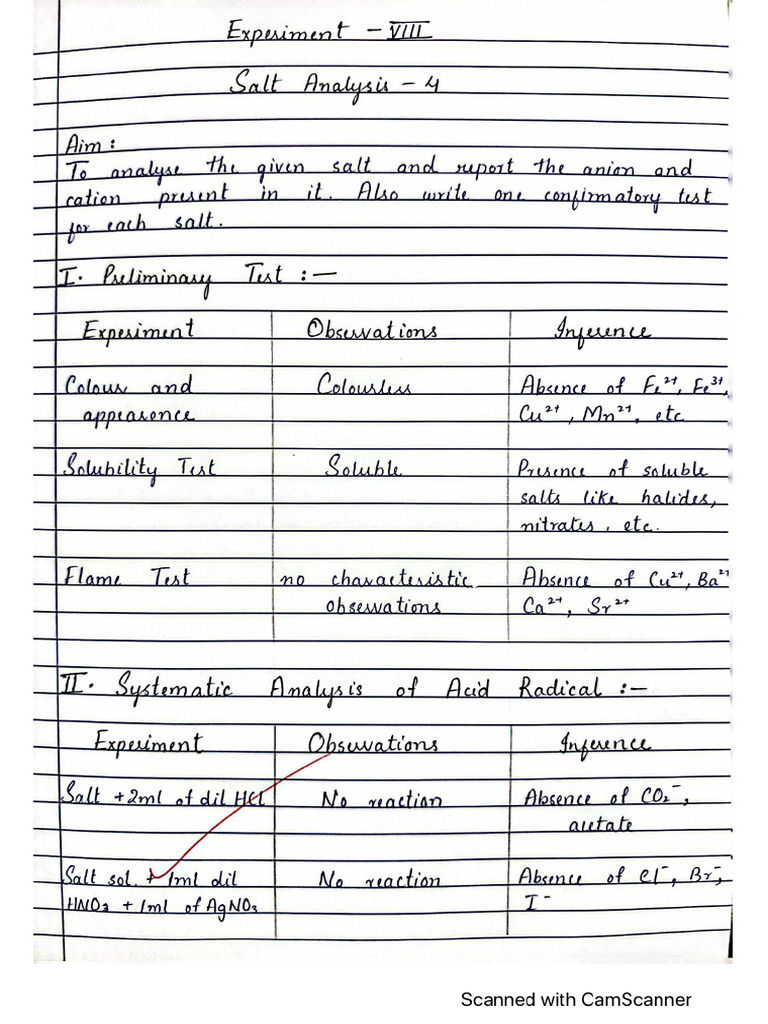 Experiment - VIII
Salt Analysis - 4
Aim :
To analyse the given salt and report the anion and
cation present in it. Also write one confirmatory test
for each salt.
I. Preliminary Test :—
Experiment Observations Inference
Colour and Colourless Absence of Fe²⁺, Fe³⁺,
appearence Cu²⁺, Mn²⁺, etc
Solubility Test Soluble Presence of soluble
salts like halides,
nitrates, etc.
Flame Test no characteristic Absence of Cu²⁺, Ba²⁺
observations Ca²⁺, Sr²⁺
II. Systematic Analysis of Acid Radical :—
Experiment Observations Inference
Salt + 2ml of dil HCl No reaction Absence of CO₂⁻,
acetate
Salt sol. + 1ml dil No reaction Absence of Cl⁻, Br⁻,
HNO₃ + 1ml of AgNO₃ I⁻
Scanned with CamScanner